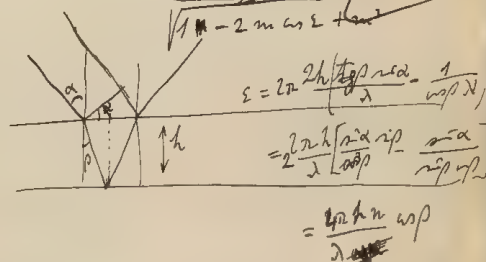 √1 - 2 m cos ε + m²
α
β
h
ε = 2π 2h ( tgβ sin α / λ - 1 / cosβ λ' )
= 2 2πh / λ [ sin α sin β / cosβ - sin α / sin β cosβ ]
= 4π h n / λ cosβ